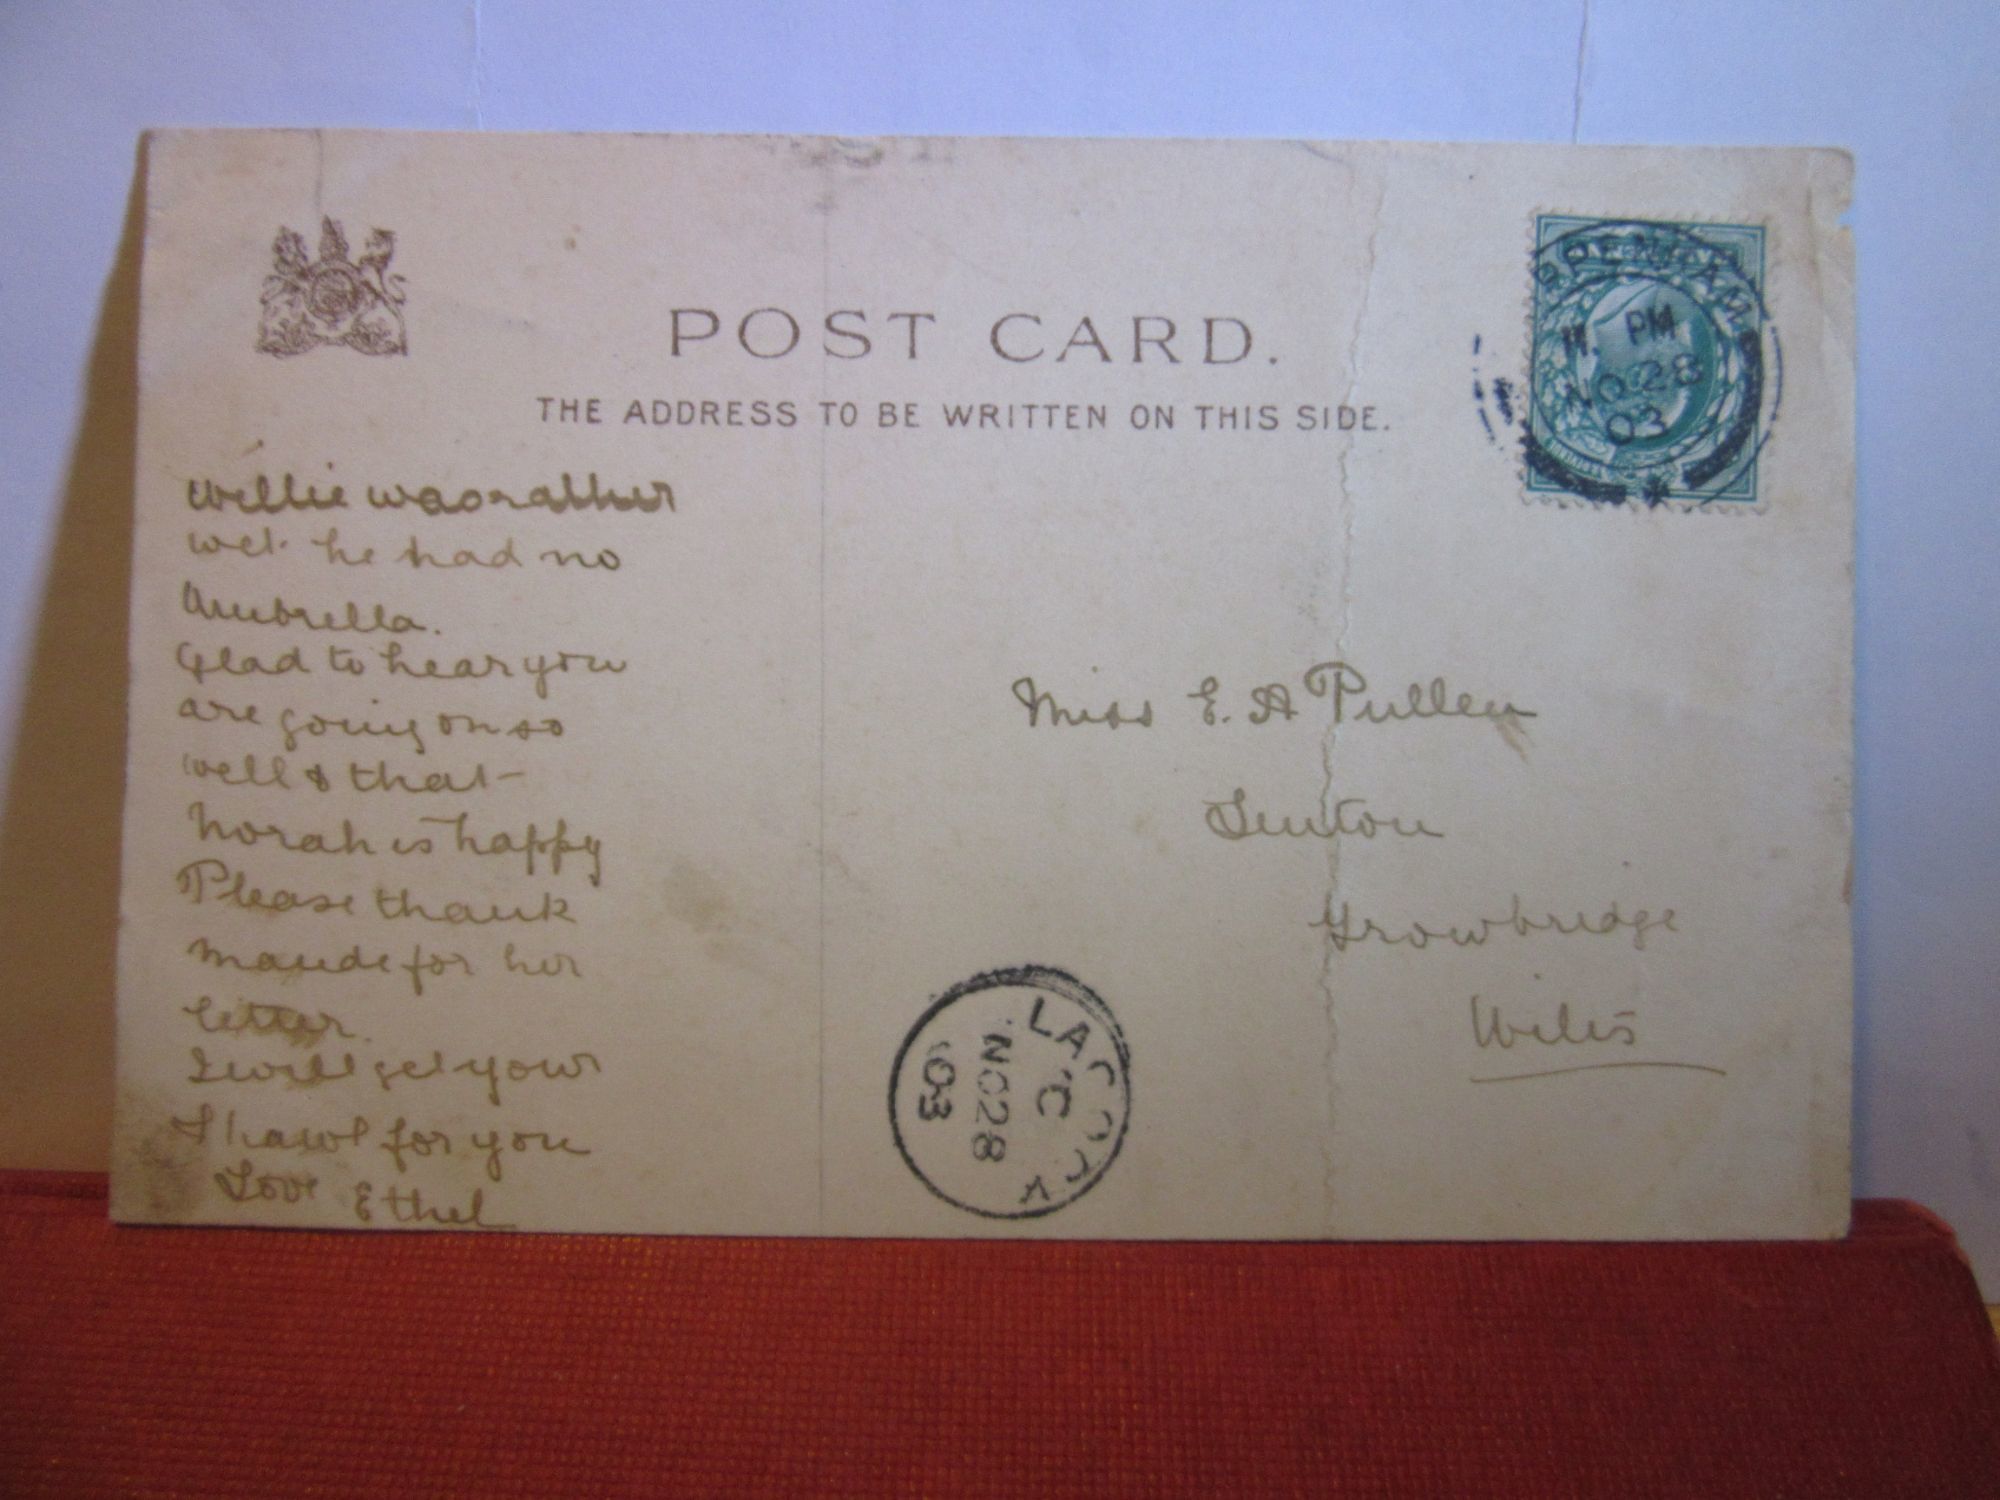 POST CARD.
THE ADDRESS TO BE WRITTEN ON THIS SIDE.
PPENHAM
11. PM
NO 28
03
Willie was rather
wet. he had no
Umbrella.
Glad to hear you
are going on so
well & that
Norah is happy
Please thank
Maude for her
letter.
I will get your
Shawl for you
Love Ethel
Miss E. A Pullen
Trowbridge
Wilts
LACOCK
C
NO 28
03